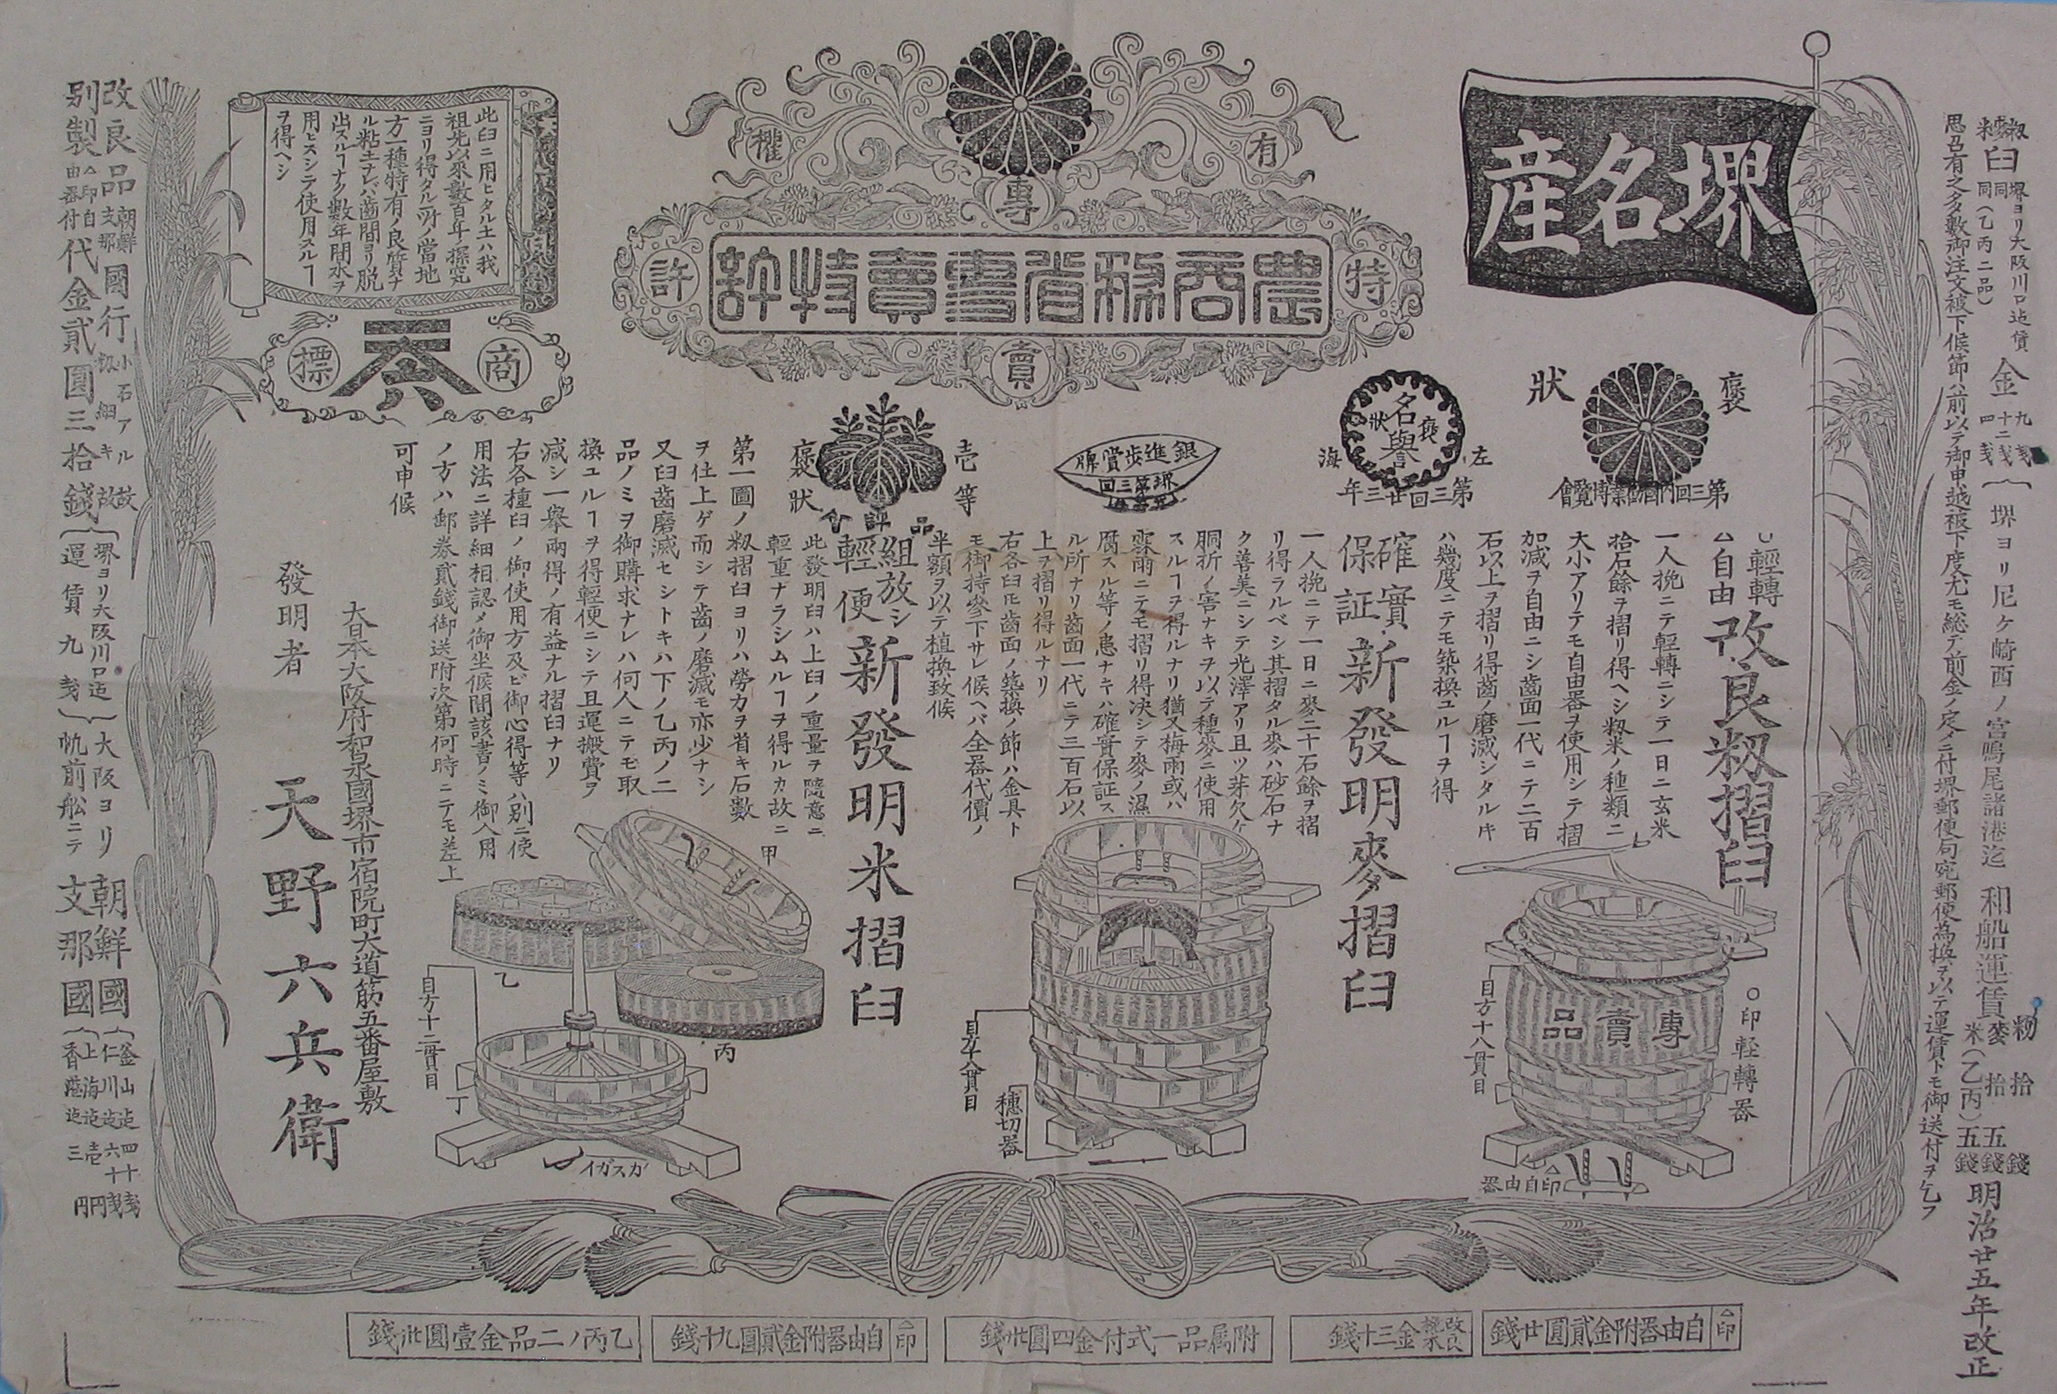 明治廿五年改正
堺名産
有
權
專
農商務省專賣特許
特
許
賣
褒
狀
第三回内國勧業博覽會
名譽
褒狀
左
海
第三回廿三年
銀進歩賞牌
壱等
褒狀
品評会
商
標
此臼ニ用ヒタル土ハ我
祖先以來數百年ノ探究
ニヨリ得タル所ノ當地
方一種特有ノ良質ナ
ル粘土ナレハ齒間ヨリ脱
出スルヿナク數年間水ヲ
用ヒスシテ使用スルヿ
ヲ得ヘシ
輕轉
自由
改良籾摺臼
一人挽ニテ輕轉ニシテ一日ニ玄米
拾石餘ヲ摺リ得ヘシ籾米ノ種類ニ
大小アリテモ自由器ヲ使用シテ摺
加減ヲ自由ニシ齒面一代ニテ二百
石以上ヲ摺リ得齒ノ磨滅シタルキ
ハ幾度ニテモ築換ユルヿヲ得
確實
保証
新發明麥摺臼
一人挽ニテ一日ニ麥二十石餘ヲ摺
リ得ラルベシ其摺タル麥ハ砂石ナ
ク善美ニシテ光澤アリ且ツ芽欠ケ
胴折ノ害ナキヲ以テ種麥ニ使用
スルヿヲ得ルナリ猶又梅雨或ハ
霖雨ニテモ摺リ得決シテ麥ノ濕
腐スル等ノ患ナキハ確實保証ス
ル所ナリ齒面一代ニテ三百石以
上ヲ摺リ得ルナリ
右各臼圧齒面ノ築換ノ節ハ金具ト
モ御持參下サレ候ヘバ全器代價ノ
半額ヲ以テ植換致候
組放シ
輕便
新發明米摺臼
此發明臼ハ上臼ノ重量ヲ隨意ニ
輕重ナラシムルヿヲ得ルカ故ニ
第一圖ノ籾摺臼ヨリハ勞力ヲ省キ石數
ヲ仕上ゲ而シテ齒ノ磨滅モ亦少ナシ
又臼齒磨滅セシトキハ下ノ乙丙ノ二
品ノミヲ御購求ナレハ何人ニテモ取
換ユルヿヲ得輕便ニシテ且運搬費ヲ
減シ一擧兩得ノ有益ナル摺臼ナリ
右各種臼ノ御使用方及ビ御心得等ハ別ニ使
用法ニ詳細相認メ御坐候間該書ノミ御入用
ノ方ハ郵券貳錢御送附次第何時ニテモ差上
可申候
大日本大阪府和泉國堺市宿院町大道筋五番屋敷
發明者
天野六兵衛
專賣品
目方十八貫目
〇印軽轉器
△印自由器
目方廿八貫目
穗切器
甲
乙
丙
丁
目方十二貫目
カスガイ
△印
自由器附金貳圓廿錢
改良挽木
金三十錢
附属品一式付金四圓卅錢
△印
自由器附金貳圓九十錢
乙丙ノ二品金壹圓卅錢
思召有之多數御注文被下候節ハ前以テ御申越被下度尤モ総テ前金ノ定メニ付堺郵便局宛郵便為換ヲ以テ運賃トモ御送付ヲ乞フ
堺ヨリ大阪川口迄賃
金
九錢
十二錢
四錢
堺ヨリ尼ケ崎西ノ宮鳴尾諸港迄
和船運賃
籾 拾錢
麥 拾五錢
米(乙丙)五錢
改良品
朝鮮
支那
國行
小石アル故
別製
△印自
由器付
代金貳圓三拾錢
堺ヨリ大阪川口迄
運賃九錢
大阪ヨリ
帆前船ニテ
朝鮮國
釜山迄四十錢
仁川迄六十錢
支那國
上海迄壱円
香港迄三円